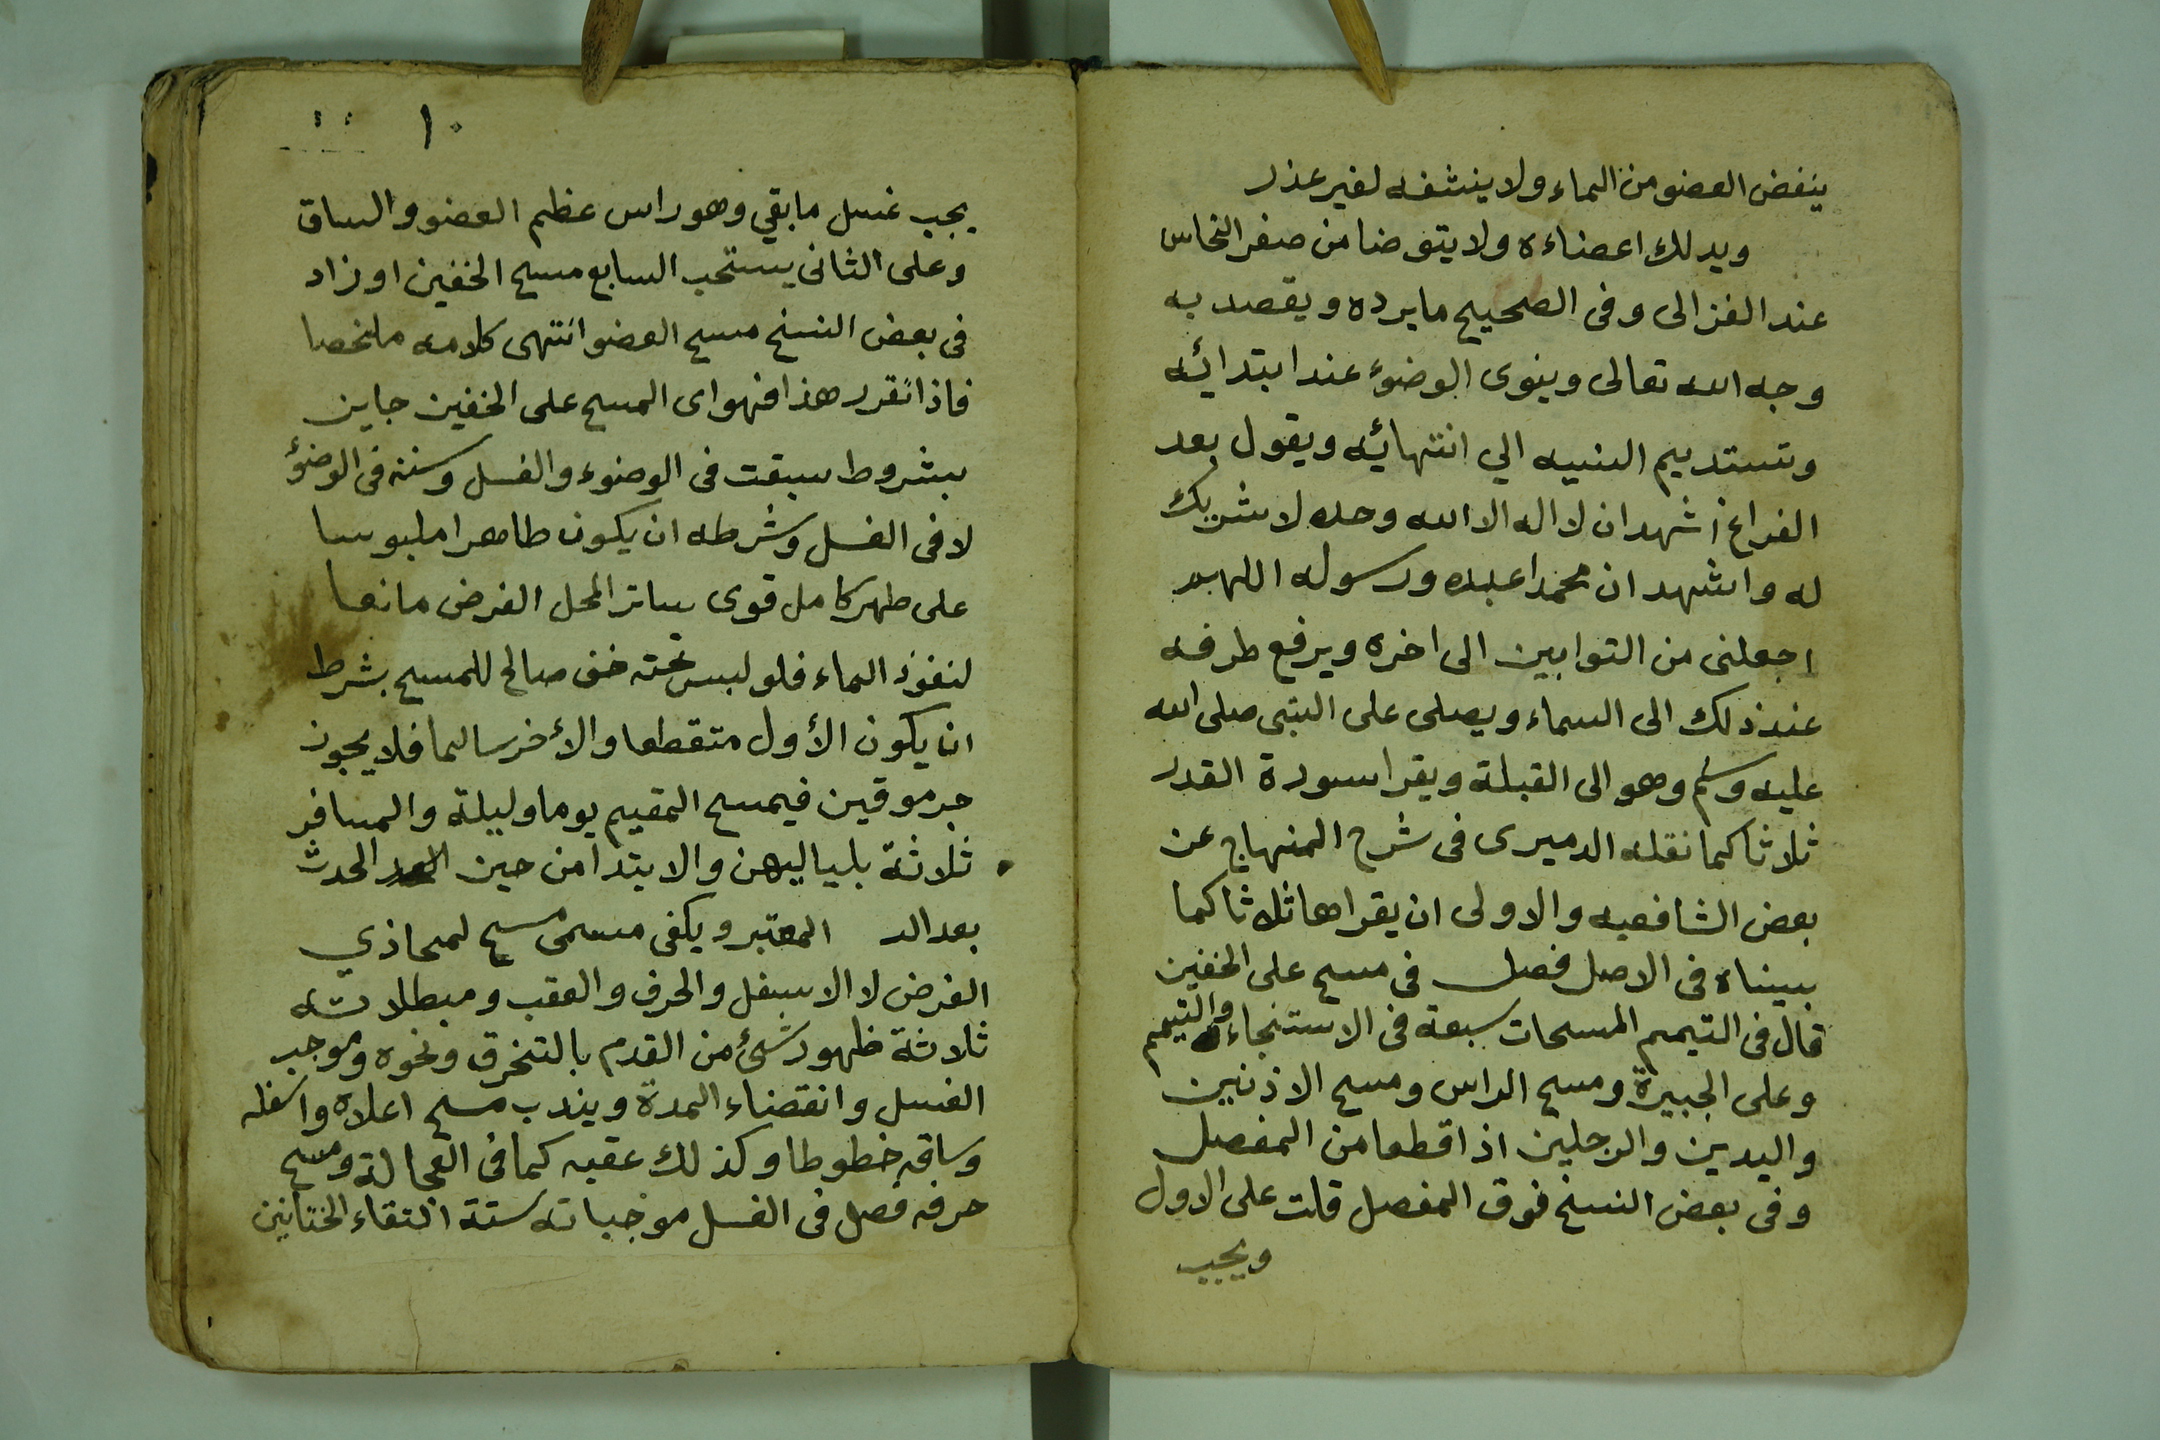 ينفض العضو من الماء ولا ينشفه لغير عذر
ويدلك اعضاءه ولا يتوضا من صفر النحاس
عند الغزالى وفى الصحيح ما يرده ويقصد به
وجه الله تعالى وينوى الوضوء عند ابتدائه
وتستديم النيه الي انتهائه ويقول بعد
الفراغ اشهد ان لا اله الا الله وحده لا شريك
له واشهد ان محمدا عبده ورسوله اللهم
اجعلنى من التوابين الى اخره ويرفع طرفه
عند ذلك الى السماء ويصلى على النبى صلى الله
عليه وسلم وهو الى القبلة ويقرا سورة القدر
ثلاثا كما نقله الدميرى فى شرح المنهاج عن
بعض الشافعيه والاولى ان يقراها ثلاثا كما
بيناه فى الاصل فصل فى مسح على الخفين
قال فى التيمم المسحات سبعة فى الاستنجاء والتيمم
وعلى الجبيرة ومسح الراس ومسح الاذنين
واليدين والرجلين اذا قطعا من المفصل
وفى بعض النسخ فوق المفصل قلت على الاول
ويجب
١٠
يجب غسل ما بقي وهو راس عظم العضو والساق
وعلى الثانى يستحب السابع مسح الخفين او زاد
فى بعض النسخ مسح العضو انتهى كلامه ملخصا
فاذا تقرر هذا فهو اى المسح على الخفين جايز
بشروط سبقت فى الوضوء والغسل وسننه فى الوضوء
لا فى الغسل وشرطه ان يكون طاهرا ملبوسا
على طهر كامل قوى ساتر المحل الفرض مانعا
لنفوذ الماء فلو لبس تحته خف صالح للمسح بشرط
ان يكون الأول متقطعا والأخر سالما فلا يجوز
جرموقين فيمسح المقيم يوما وليلة والمسافر
ثلاثة بلياليهن والابتدا من حين الحدث
بعد المعتبر ويكفى مسمى مسح لمحاذي
الفرض لا الاسفل والحرف والعقب ومبطلاته
ثلاثة ظهور شئ من القدم بالتخرق ونحوه وموجب
الغسل وانقضاء المدة ويندب مسح اعلاه واسفله
وساقه خطوطا وكذلك عقبه كما فى العجالة ومسح
حرفه فصل فى الغسل موجباته ستة التقاء الختانين